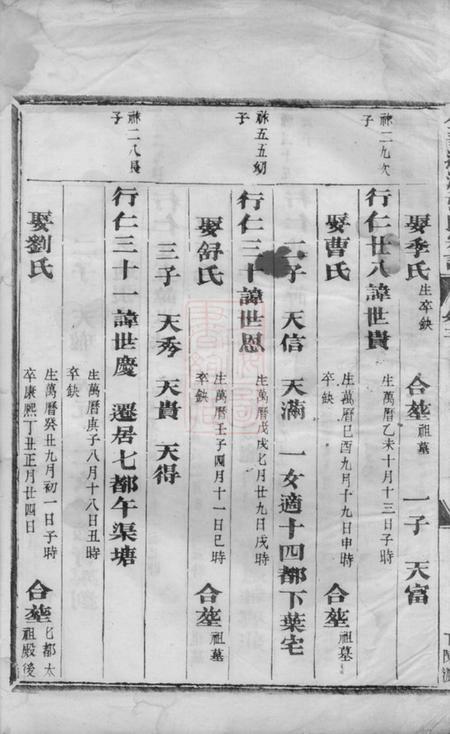 娶季氏 生卒缺 合塟祖墓 一子 天富
祩二九次子
行仁廿八諱世貴 生萬曆乙未十月十三日子時
卒缺
娶曹氏 生萬曆己酉九月十九日申時
卒缺 合塟祖墓
二子 天信 天滿 一女適十四都下葉宅
祩五五幼子
行仁三十諱世恩 生萬曆戊戌七月廿九日戌時
卒缺
娶舒氏 生萬曆壬子四月十一日巳時
卒缺 合塟祖墓
三子 天秀 天貴 天得
祩二八長子
行仁三十一諱世慶 遷居七都午渠塘
生萬曆庚子八月十八日丑時
卒缺
娶劉氏 生萬曆癸丑九月初一日子時
卒康熙丁丑正月廿四日 合塟七都太祖殿後